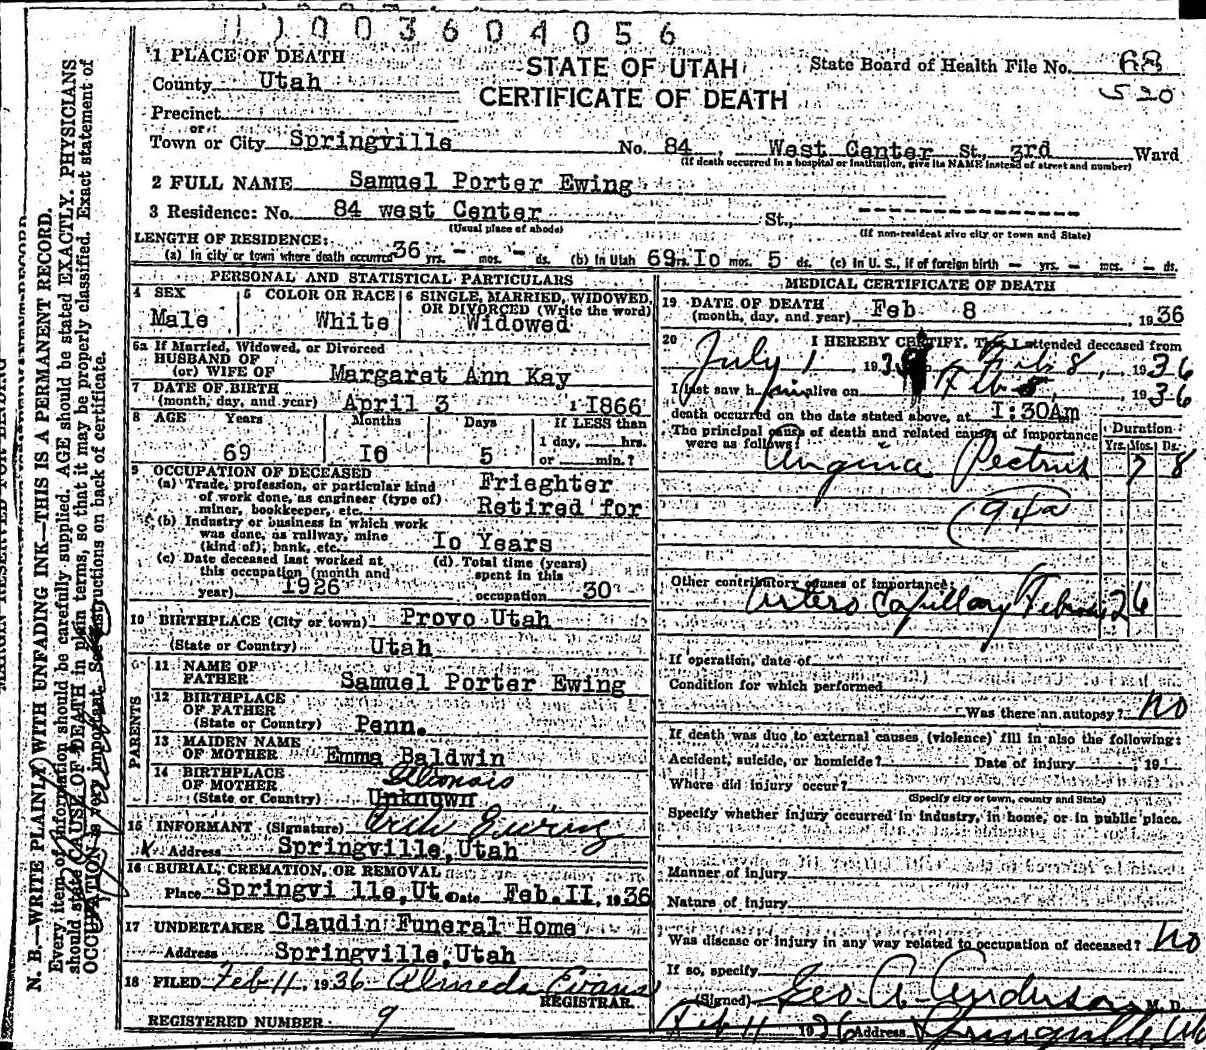 11003604056
1 PLACE OF DEATH
STATE OF UTAH
State Board of Health File No. 68
County Utah
CERTIFICATE OF DEATH
520
Precinct
or
Town or City Springville No. 84, West Center St., 3rd Ward
(If death occurred in a hospital or institution, give its NAME instead of street and number)
2 FULL NAME Samuel Porter Ewing
3 Residence: No. 84 west Center St.,
(Usual place of abode) (If non-resident give city or town and State)
LENGTH OF RESIDENCE:
(a) In city or town where death occurred 36 yrs. - mos. - ds. (b) In Utah 69 yrs. Io mos. 5 ds. (c) In U. S., if of foreign birth - yrs. - mos. - ds.
PERSONAL AND STATISTICAL PARTICULARS
4 SEX
Male
5 COLOR OR RACE
White
6 SINGLE, MARRIED, WIDOWED,
OR DIVORCED (Write the word)
Widowed
6a If Married, Widowed, or Divorced
HUSBAND OF
(or) WIFE OF Margaret Ann Kay
7 DATE OF BIRTH
(month, day, and year) April 3 1866
8 AGE Years Months Days If LESS than
1 day, hrs.
69 I0 5 or min.?
9 OCCUPATION OF DECEASED
(a) Trade, profession, or particular kind
of work done, as engineer (type of)
miner, bookkeeper, etc.
Frieghter
Retired for
(b) Industry or business in which work
was done, as railway, mine
(kind of), bank, etc. Io Years
(c) Date deceased last worked at
this occupation (month and
year) 1926
(d) Total time (years)
spent in this
occupation 30
10 BIRTHPLACE (City or town) Provo Utah
(State or Country) Utah
PARENTS
11 NAME OF
FATHER Samuel Porter Ewing
12 BIRTHPLACE
OF FATHER
(State or Country) Penn.
13 MAIDEN NAME
OF MOTHER Emma Baldwin
14 BIRTHPLACE
OF MOTHER
(State or Country) Unknown
15 INFORMANT (Signature) Ewing
Address Springville, Utah
16 BURIAL, CREMATION, OR REMOVAL
Place Springvi lle, Ut. Date Feb. II, 1936
17 UNDERTAKER Claudin Funeral Home
Address Springville, Utah
18 FILED Feb 11, 1936 Almeda Evans
REGISTRAR
REGISTERED NUMBER 9
MEDICAL CERTIFICATE OF DEATH
19 DATE OF DEATH
(month, day, and year) Feb 8, 1936
20 I HEREBY CERTIFY, That I attended deceased from
July 1 193 Feb 8, 1936
I last saw him alive on Feb 8, 1936
death occurred on the date stated above, at I:30Am
The principal cause of death and related causes of importance
were as follows:
Duration
Yrs. Mos. Ds.
Angina Pectris 7 8
94a
Other contributory causes of importance:
Artero Capillary 2 6
If operation, date of
Condition for which performed
Was there an autopsy? no
If death was due to external causes (violence) fill in also the following:
Accident, suicide, or homicide? Date of injury 19
Where did injury occur?
(Specify city or town, county and State)
Specify whether injury occurred in industry, in home, or in public place.
Manner of injury
Nature of injury
Was disease or injury in any way related to occupation of deceased? no
If so, specify
(Signed) Geo. A. Anderson M. D.
Feb 11 1936 Address Springville, Ut
N. B.—WRITE PLAINLY WITH UNFADING INK—THIS IS A PERMANENT RECORD.
Every item of information should be carefully supplied. AGE should be stated EXACTLY. PHYSICIANS
should state CAUSE OF DEATH in plain terms, so that it may be properly classified. Exact statement of
OCCUPATION is very important. See instructions on back of certificate.
MARGIN RESERVED FOR BINDING